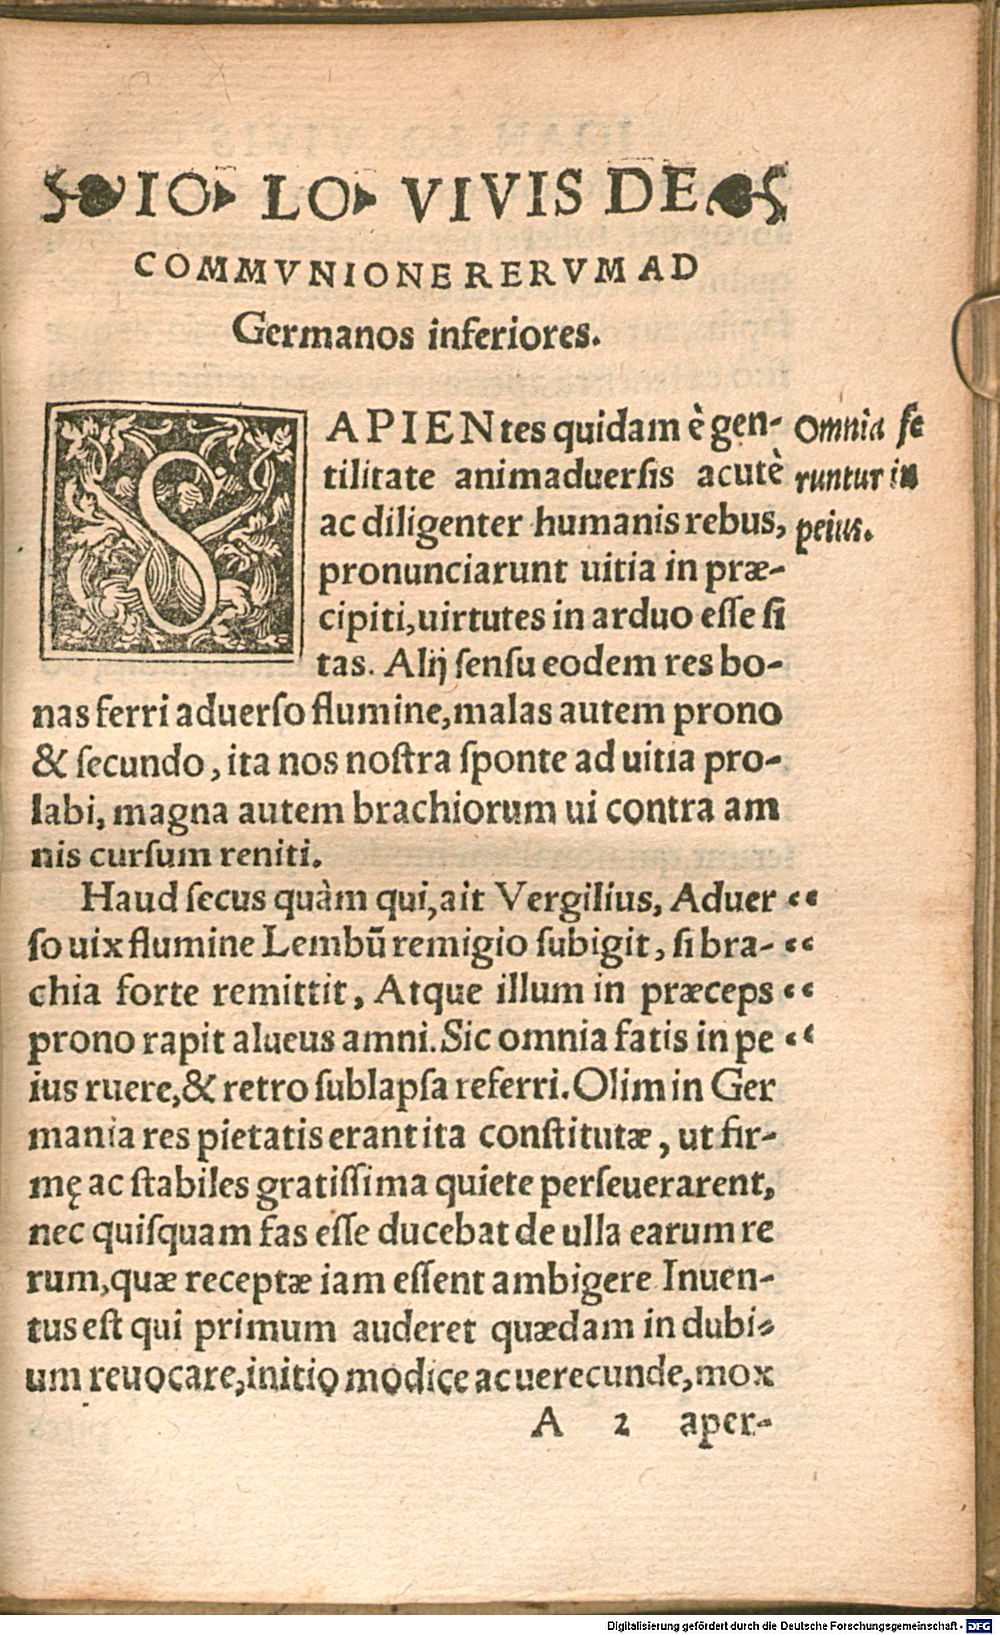 IO LO VIVIS DE
COMMVNIONE RERVM AD
Germanos inferiores.
SAPIENtes quidam è gen-
tilitate animaduersis acutè
ac diligenter humanis rebus,
pronunciarunt uitia in præ-
cipiti, uirtutes in arduo esse si
tas. Alij sensu eodem res bo-
nas ferri aduerso flumine, malas autem prono
& secundo, ita nos nostra sponte ad uitia pro-
labi, magna autem brachiorum ui contra am
nis cursum reniti.
Omnia fe
runtur in
peius.
Haud secus quàm qui, ait Vergilius, Aduer “
so uix flumine Lembū remigio subigit, si bra- “
chia forte remittit, Atque illum in præceps “
prono rapit alueus amni. Sic omnia fatis in pe “
ius ruere, & retro sublapsa referri. Olim in Ger
mania res pietatis erant ita constitutæ, ut fir-
mę ac stabiles gratissima quiete perseuerarent,
nec quisquam fas esse ducebat de ulla earum re
rum, quæ receptæ iam essent ambigere Inuen-
tus est qui primum auderet quædam in dubi-
um reuocare, initio modice ac uerecunde, mox
A 2 aper-
Digitalisierung gefördert durch die Deutsche Forschungsgemeinschaft - DFG